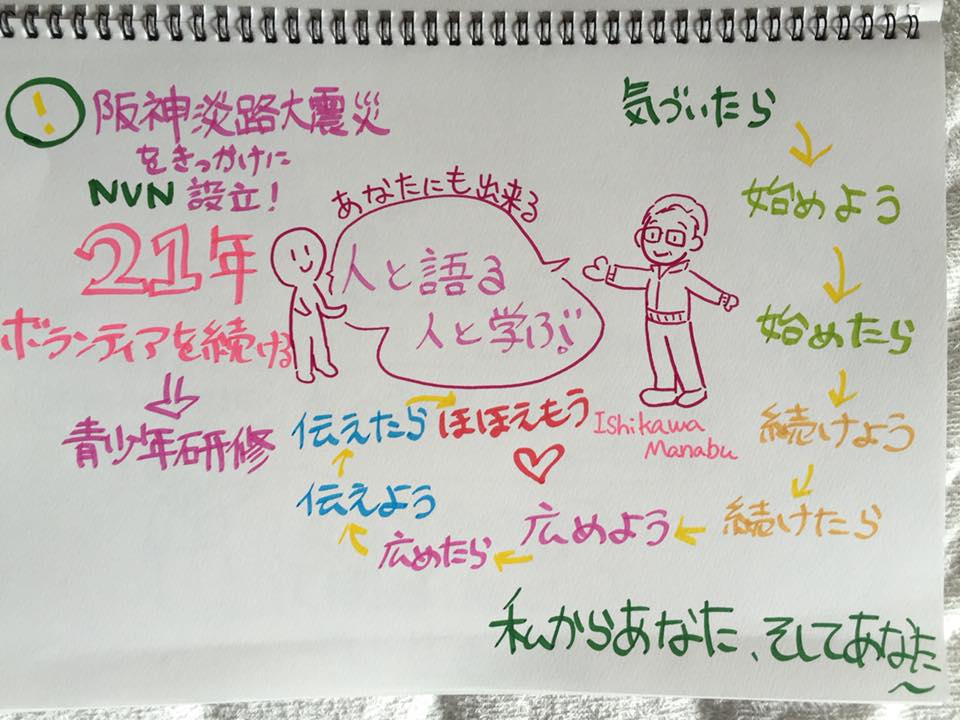 !
阪神淡路大震災
をきっかけに
NVN 設立!
21年
ボランティアを続ける
青少年研修
あなたにも出来る
人と語る
人と学ぶ!
Ishikawa
Manabu
気づいたら
始めよう
始めたら
続けよう
続けたら
広めよう
広めたら
伝えよう
伝えたら
ほほえもう
私からあなた、そしてあなた〜